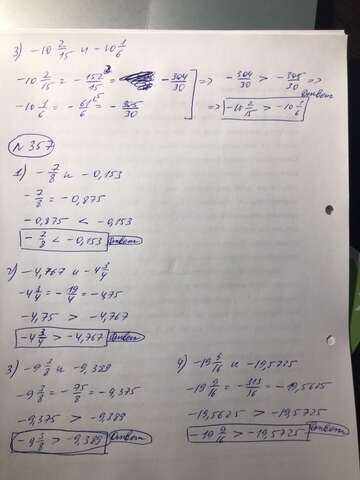 3) -10 2/15 и -10 1/6
-10 2/15 = -152/15 = -304/30 ] => -304/30 > -305/30 =>
-10 1/6 = -61/6 = -305/30 => -10 2/15 > -10 1/6 ответ
N 357
1) -7/8 и -0,153
-7/8 = -0,875
-0,875 < -0,153
-7/8 < -0,153 ответ
2) -4,767 и -4 3/4
-4 3/4 = -19/4 = -475
-4,75 > -4,767
-4 3/4 > -4,767 ответ
3) -9 3/8 и -9,389
-9 3/8 = -75/8 = -9,375
-9,375 > -9,389
-9 3/8 > -9,389 ответ
4) -19 9/16 и -19,5725
-19 9/16 = -313/16 = -19,5625
-19,5625 > -19,5725
-10 9/16 > -19,5725 ответ